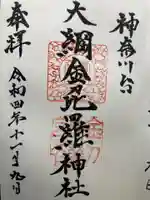 神奈川宿
大綱金刀比羅神社
奉拝
令和四年十一月九日